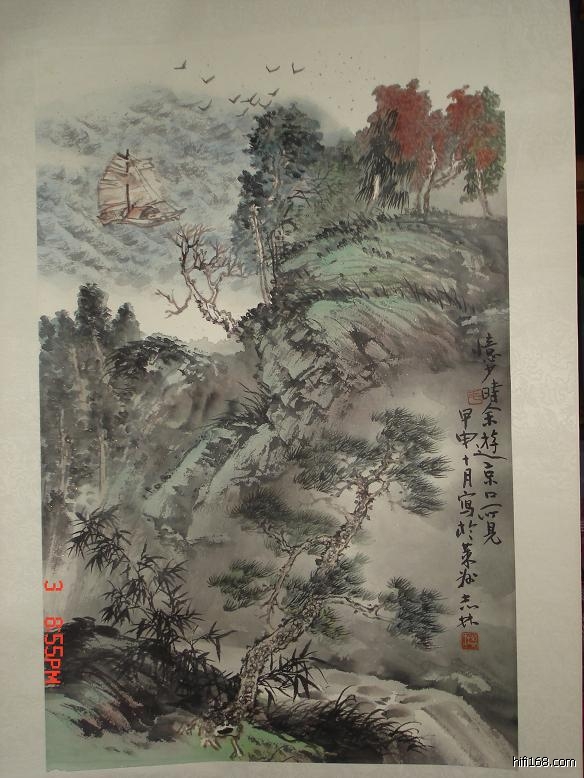 憶少時余遊京口所見
甲申十月寫於萊州志林
3 8:55PM
hifi168.com